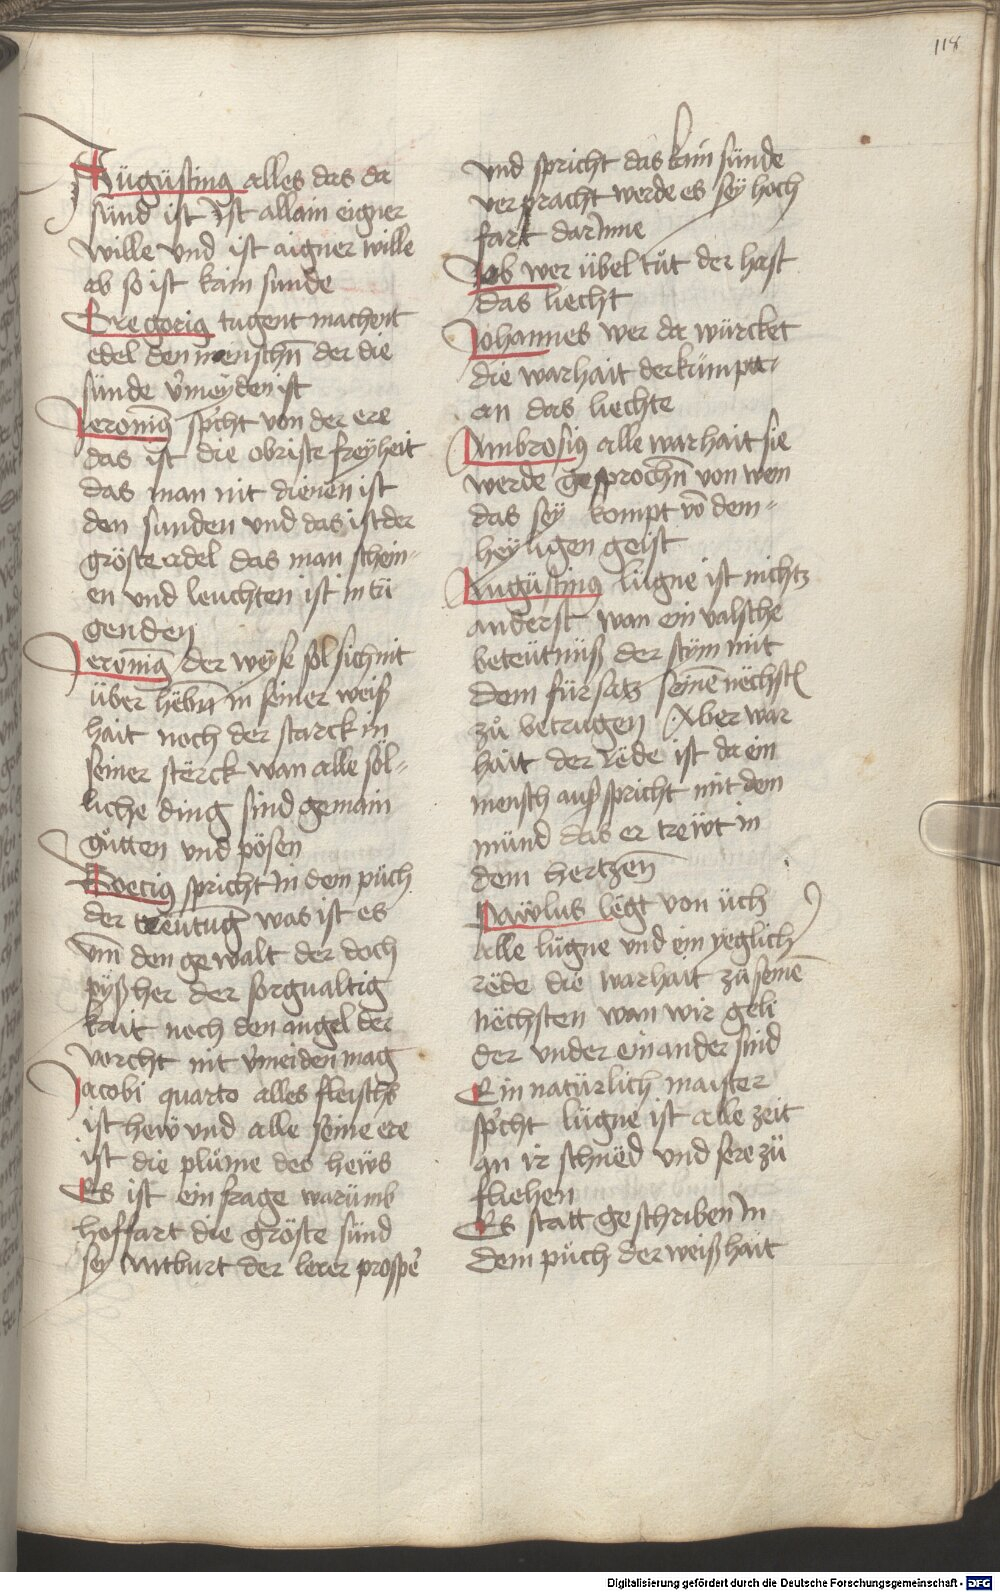 118
Augüstinꝰ alles das da
sünd ist ist allain eigner
wille vnd ist aigner wille
ab so ist kain sunde
Gregoriꝰ tugent machent
edel den menschn̄ der die
sünde v̾meyden ist
Jeronimꝰ sp̾cht von der ere
das ist die obriste freyheit
das man nit dienen ist
den sunden vnd das ist der
gröste adel das man schein-
en vnd leuchten ist in tü
genden
Jeronimꝰ der weyse sol sich nit
über hëbn̄ in seiner weiß
hait noch der starck in
seiner stërck wan alle söl-
liche ding sind gemain
gůtten vnd pösen
Boeciꝰ spricht in dem püch
der treutūg was ist es
vm̄ den gewalt der doch
pyßher der sorgualtig
kait noch den angel der
vorcht nit v̾meiden mag
Jacobi quarto alles fleischs
ist hew vnd alle seine ere
ist die plůme des hews
Es ist ein frage warümb
hoffart die gröste sünd
sey Antburt der lerer prosp̄e
vnd spricht das kain sünde
verpracht werde es sey hoch
fart darinne
Job wer übel tüt der hast
das liecht
Johannes wer da würcket
die warhait der kümptt
an das liechte
Ambrosiꝰ alle warhait sie
werde gesprochn̄ von wem
das sey kompt vō dem-
heyligen geist
Augüstinꝰ lügne ist nichtz
anderst wan ein valsche
beteütnüß der stym mit
dem fürsatz seinē nëchstē
zů betrugen Aber war
hait der rëde ist da ein
mensch auß spricht mit dem
münd das er trewt in
dem hertzen
Pawlus lëgt von üch
alle lügne vnd ein yeglich̾
rëde die warhait zü seinē
nëchsten wan wir geli
der vnder einander sind
Ein natürlich maister
sp̾cht lügne ist alle zeit
an ir schnëd vnd sere zü
fliehen
Es statt geschriben in
dem püch der weißhait
Digitalisierung gefördert durch die Deutsche Forschungsgemeinschaft - DFG